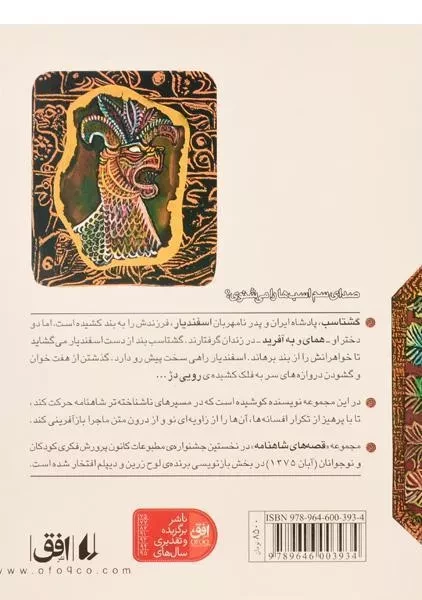 صدای سم اسب‌ها را می‌شنوی؟
گشتاسب، پادشاه ایران و پدر نامهربان اسفندیار، فرزندش را به بند کشیده است. اما دو
دختر او ـ همای و به آفرید ـ در زندان گرفتارند. گشتاسب بند از دست اسفندیار می‌گشاید
تا خواهرانش را از بند برهاند. اسفندیار راهی سخت پیش رو دارد. گذشتن از هفت خوان
و گشودن دروازه‌های سر به فلک کشیده‌ی رویی دژ...
در این مجموعه نویسنده کوشیده است که در مسیرهای ناشناخته‌تر شاهنامه حرکت کند،
تا با پرهیز از تکرار افسانه‌ها، آن‌ها را از زاویه‌ای نو و از درون متن ماجرا بازآفرینی کند.
مجموعه‌ی «قصه‌های شاهنامه» در نخستین جشنواره‌ی مطبوعات کانون پرورش فکری کودکان
و نوجوانان (آبان ۱۳۷۵) در بخش بازنویسی برنده‌ی لوح زرین و دیپلم افتخار شده است.
ISBN 978-964-600-393-4
9 789646 003934
۸۵۰۰ تومان
افق
OFOQ
ناشر
برگزیده
و تقدیری
سال‌های
افق
www.ofoqco.com